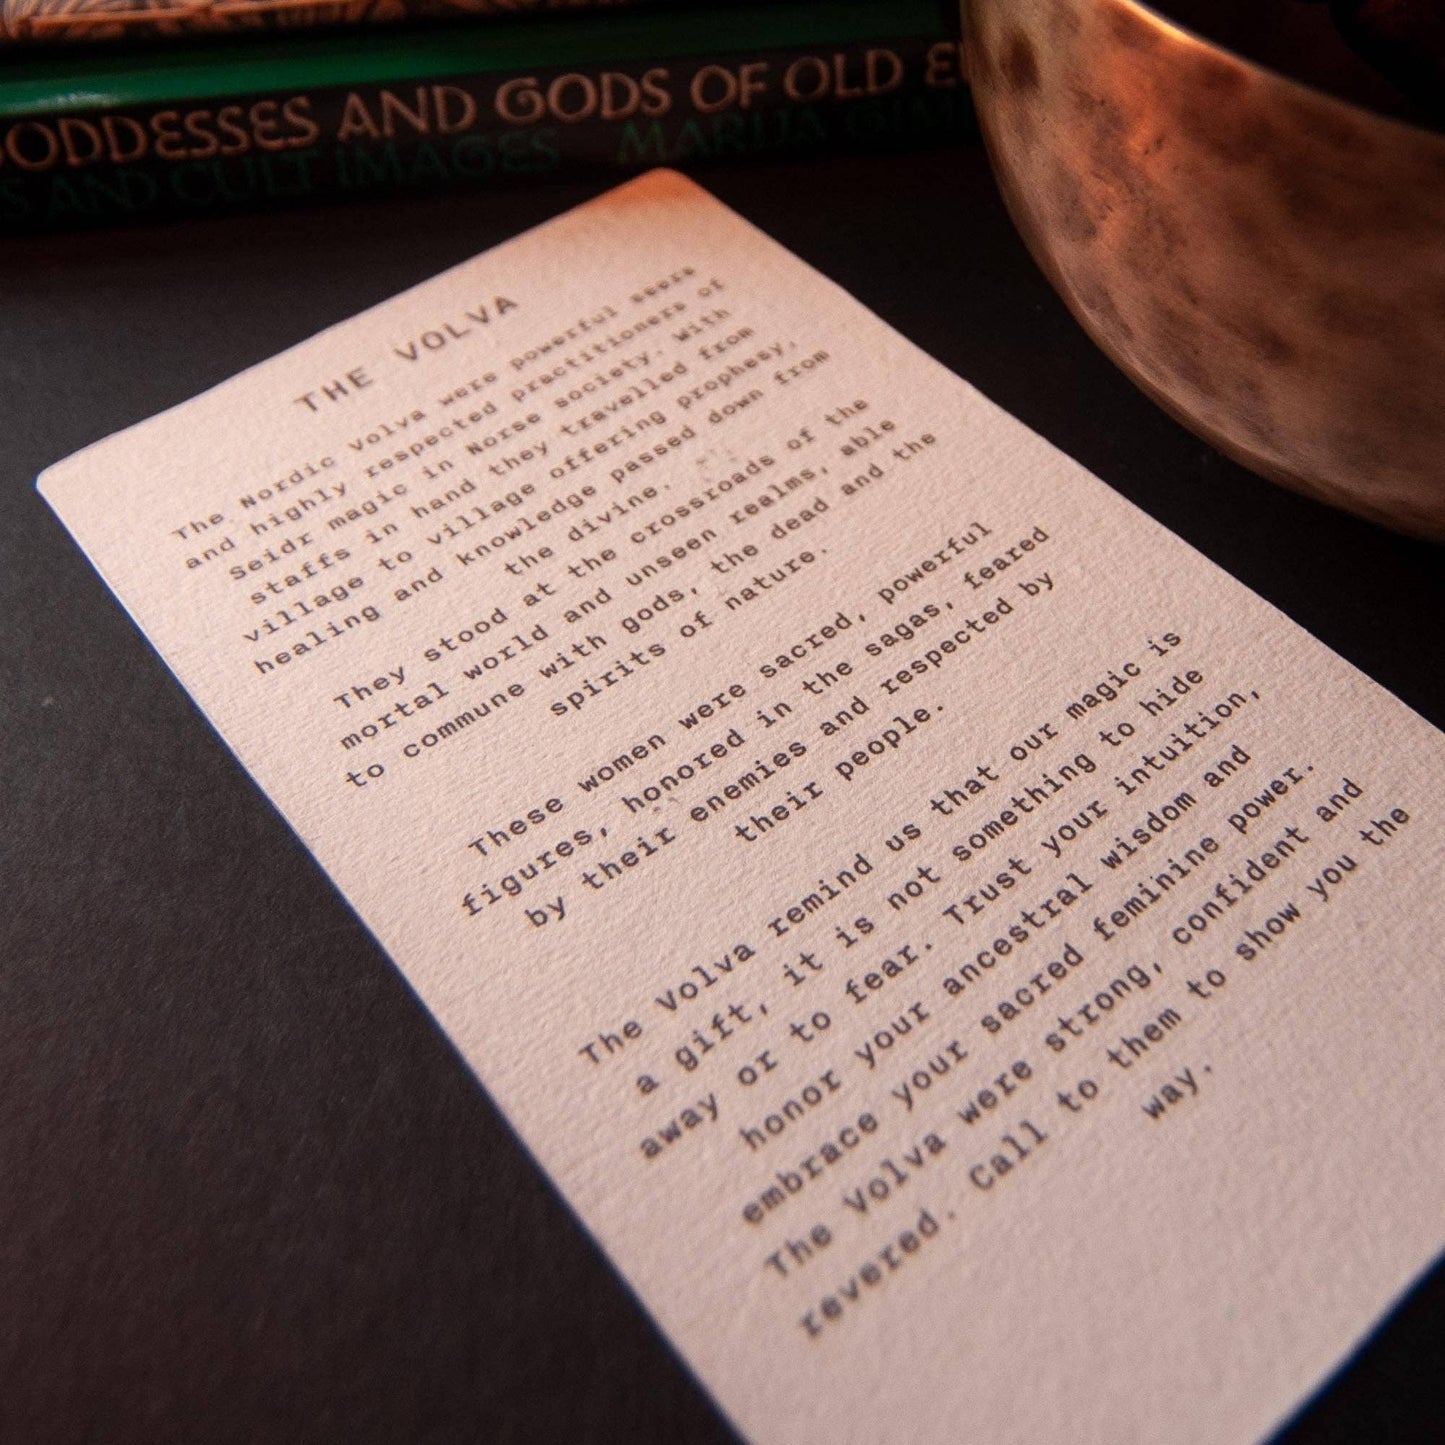 GODDESSES AND GODS OF OLD
AND CULT IMAGES MARIJA
THE VOLVA
The Nordic Volva were powerful seers
and highly respected practitioners of
Seidr magic in Norse society. With
staffs in hand they travelled from
village to village offering prophesy,
healing and knowledge passed down from
the divine.
They stood at the crossroads of the
mortal world and unseen realms, able
to commune with gods, the dead and the
spirits of nature.
These women were sacred, powerful
figures, honored in the sagas, feared
by their enemies and respected by
their people.
The Volva remind us that our magic is
a gift, it is not something to hide
away or to fear. Trust your intuition,
honor your ancestral wisdom and
embrace your sacred feminine power.
The Volva were strong, confident and
revered. Call to them to show you the
way.